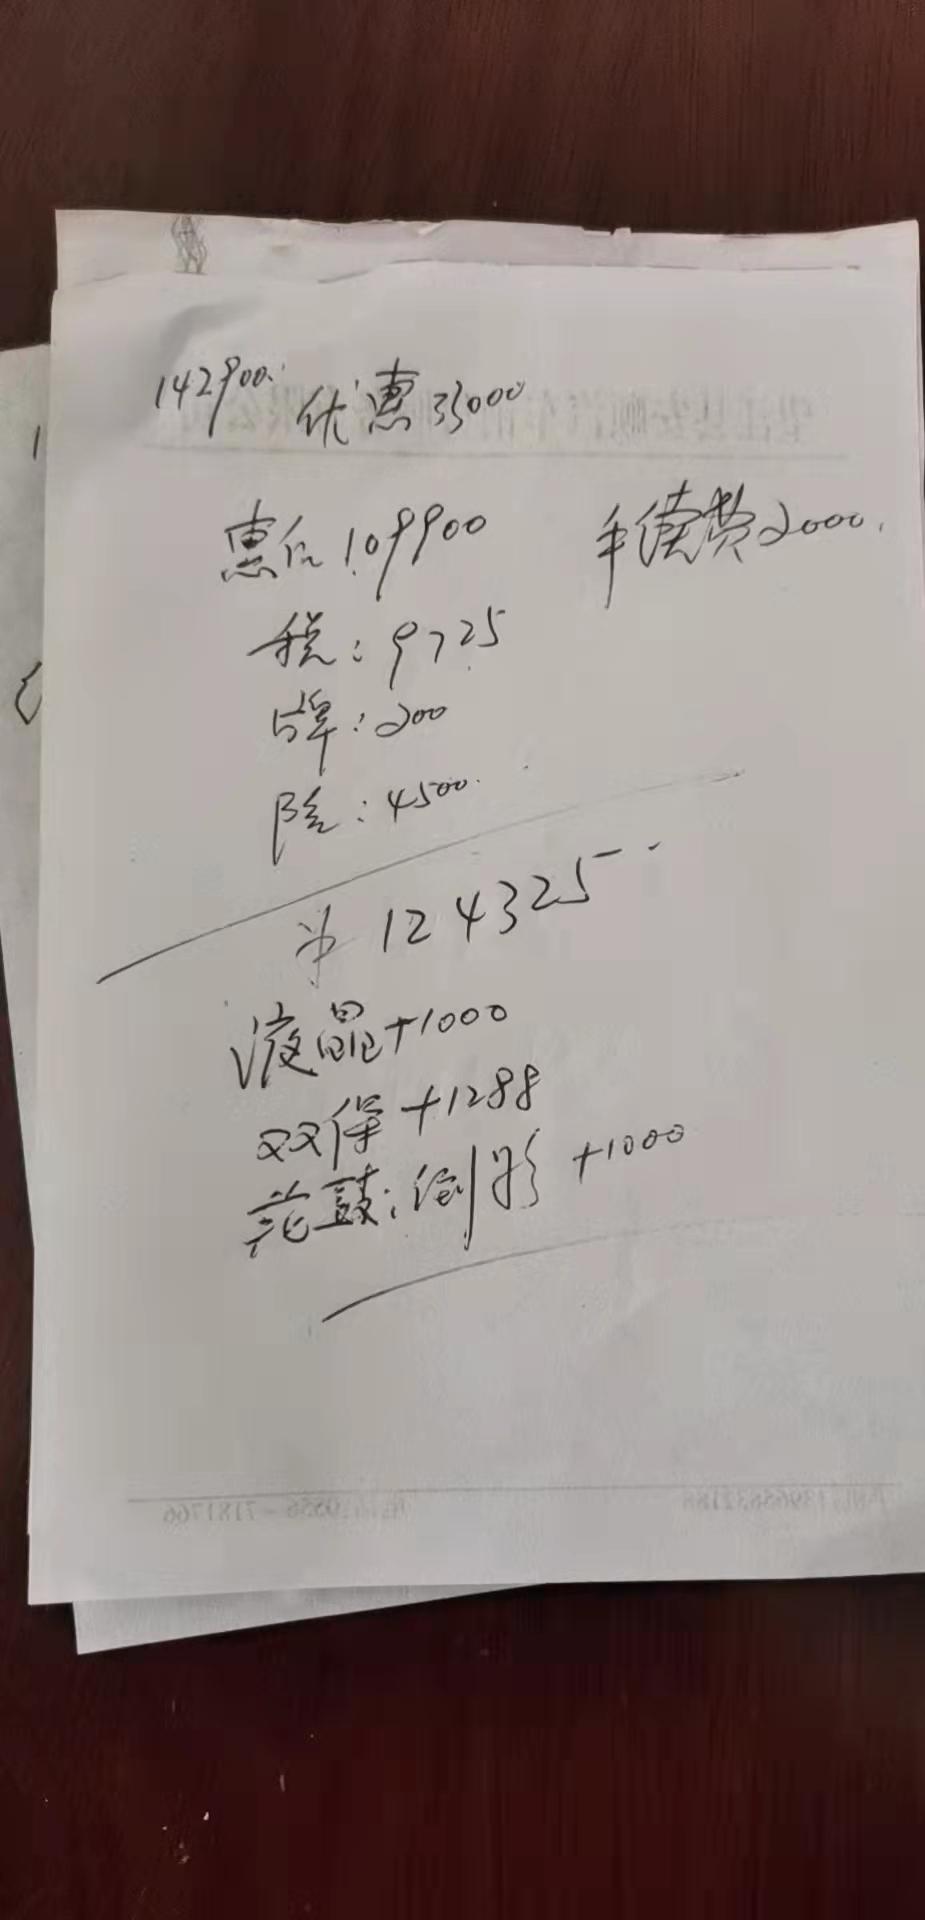 142900.
优惠33000
惠后109900
手续费2000.
税:9725
牌:200
险:4500.
¥124325
液晶+1000
双保+1288
花鼓:倒形+1000